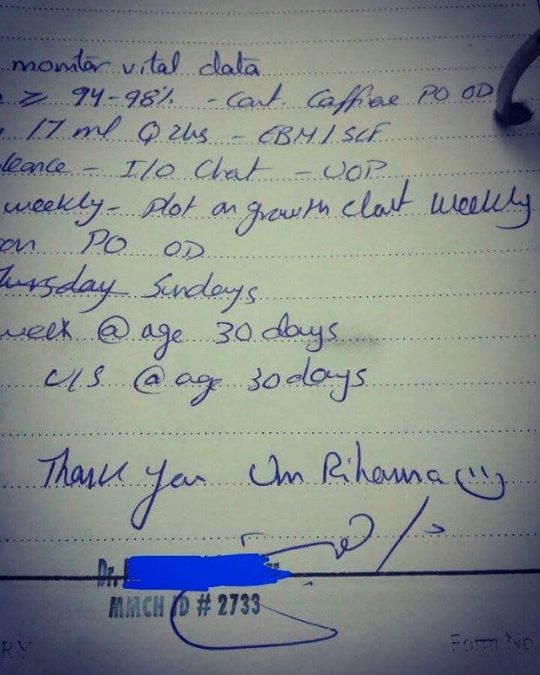 monitor vital data
≥ 94-98% - Cont. Caffiene PO OD
17 ml Q2hs - EBM / SCF
- I/O Chat - UOP
weekly - Plot on growth chart weekly
on PO OD
Thursday Sundays
week @ age 30 days
U/S @ age 30 days
Thank you Um Rihanna
Dr.
MMCH ID # 2733
RY Form No